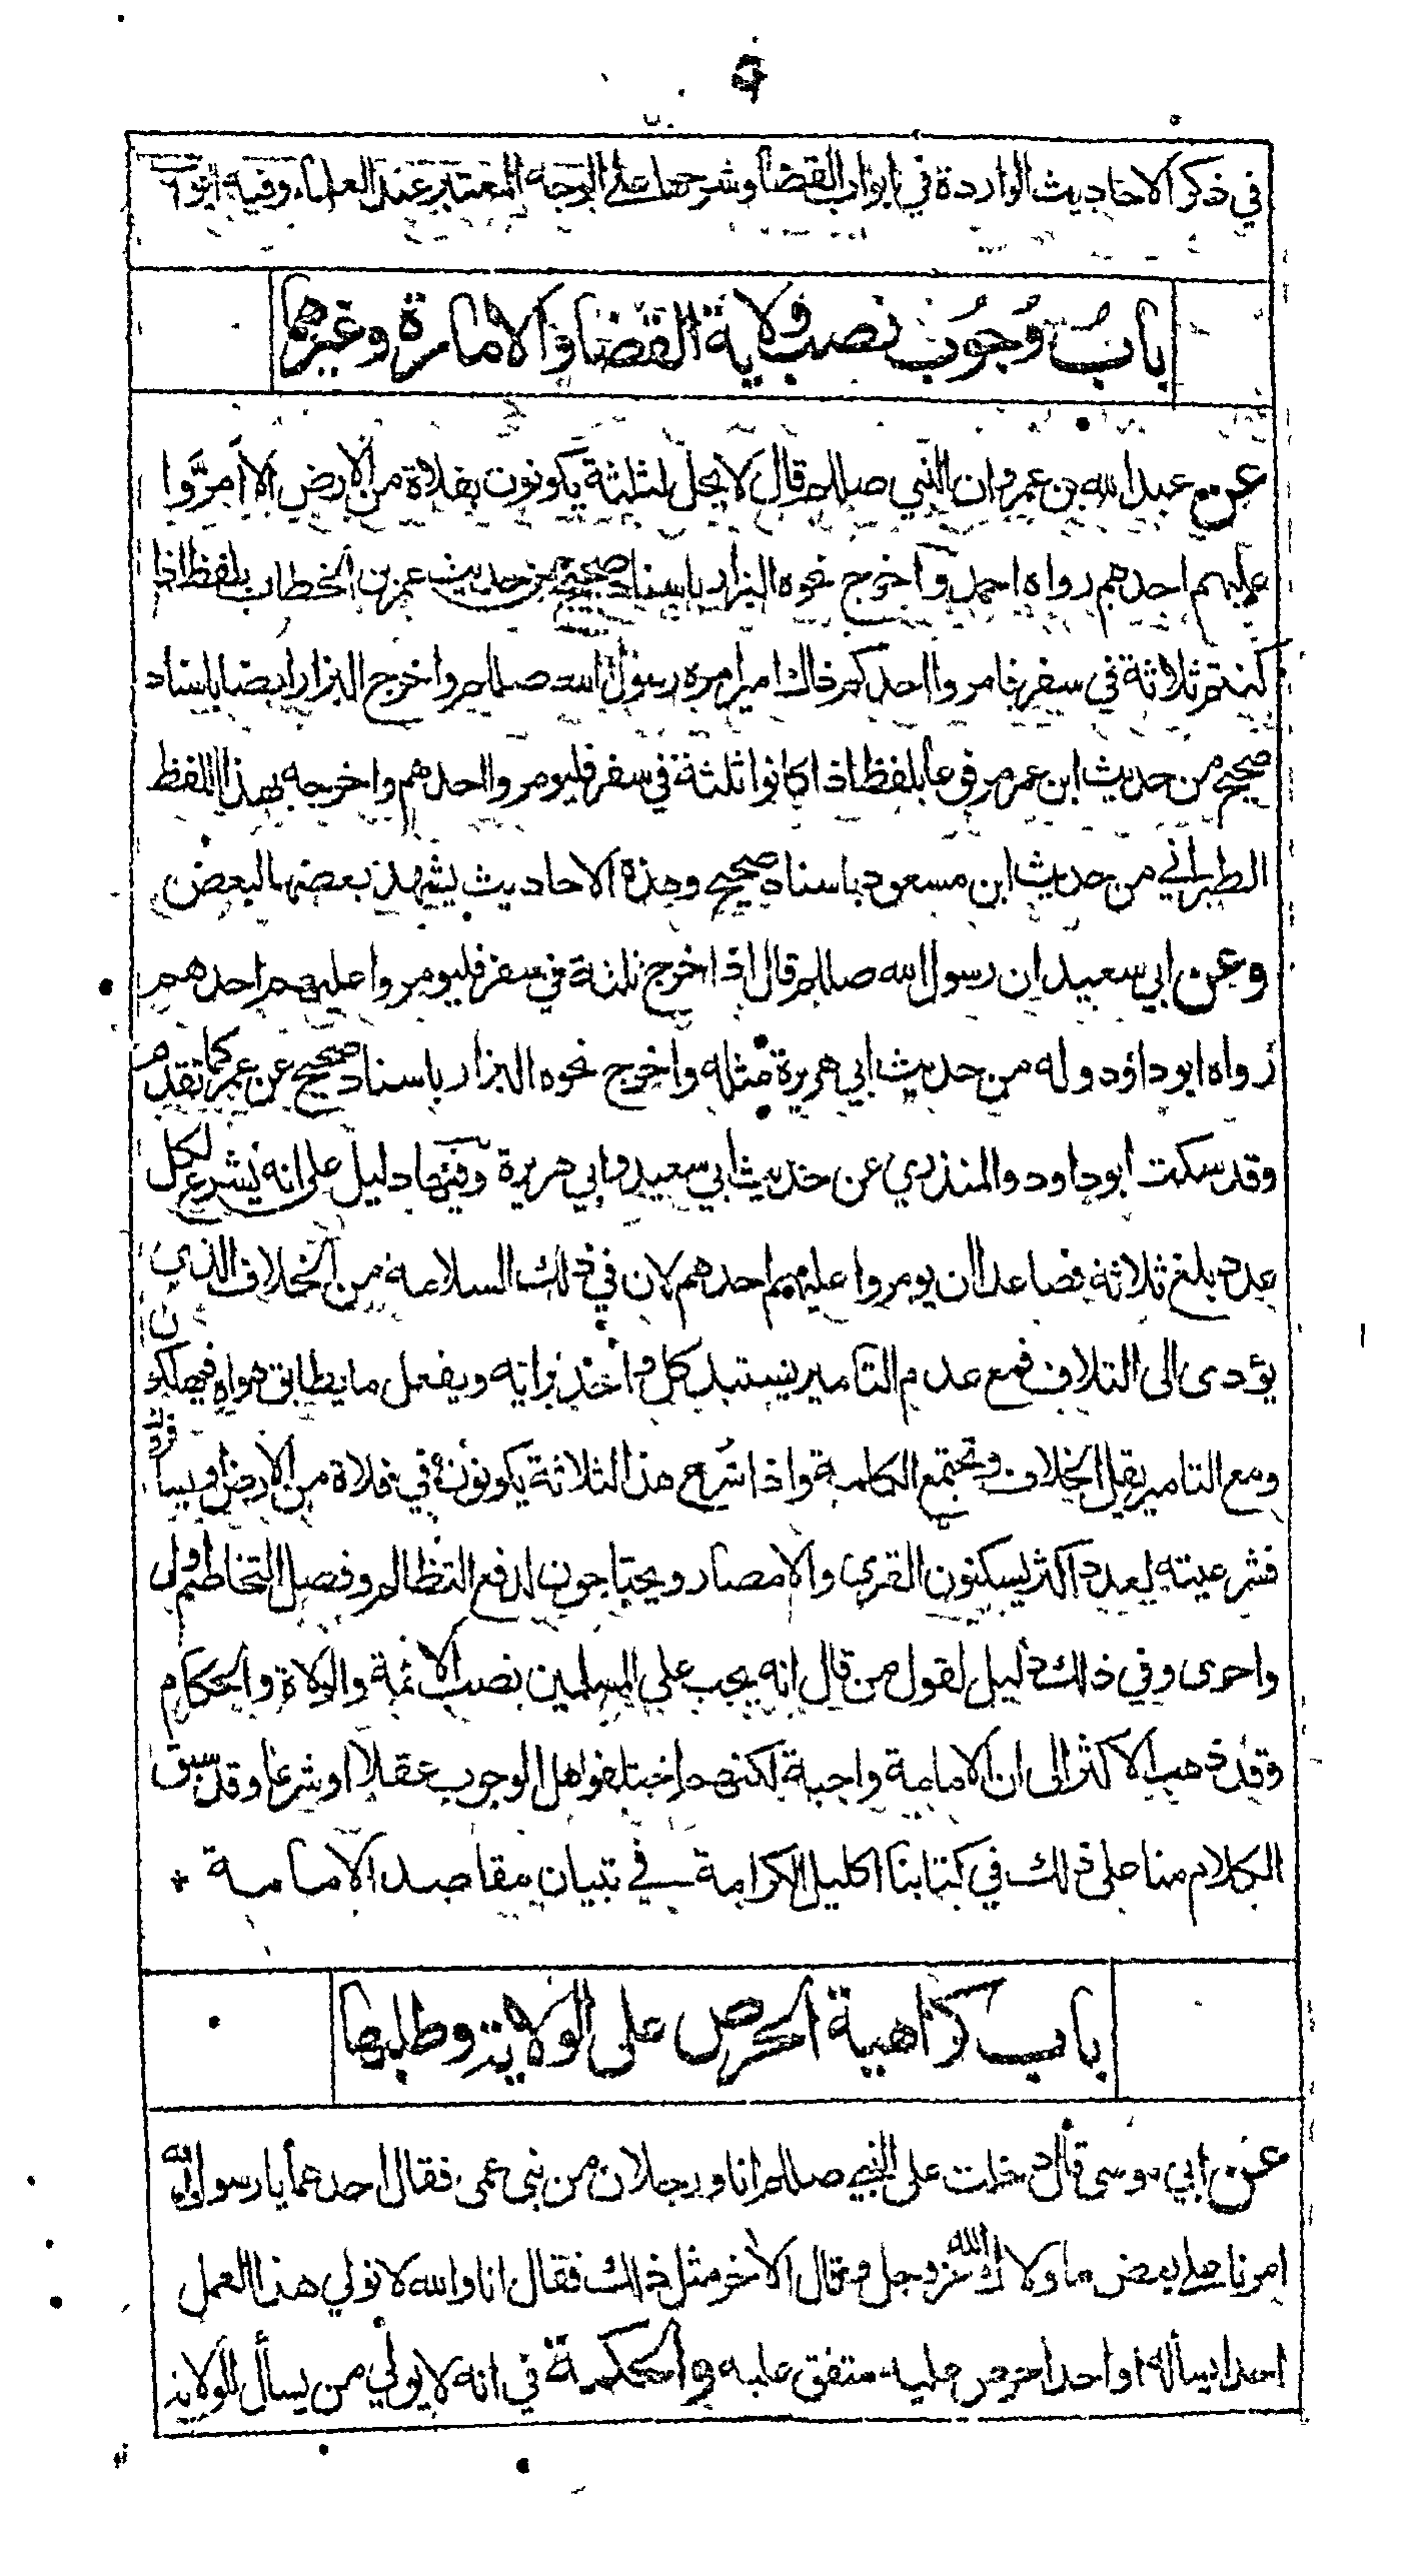 في ذكر الاحاديث الواردة في ابواب القضا وشرحها على الوجه المعتبر عند العلماء وفيه ابواب
باب وجوب نصب ولاية القضا والامارة وغيرهما
عن عبد الله بن عمرو ان النبي صللم قال لا يحل لثلثة يكونون بفلاة من الارض الا امروا
عليهم احدهم رواه احمد واخرج نحوه البزار باسناد صحيح من حديث عمر بن الخطاب بلفظ اذا
كنتم ثلاثة في سفر فامروا احدكم ذاك امير امره رسول الله صللم واخرج البزار ايضا باسناد
صحيح من حديث ابن عمر مرفوعا بلفظ اذا كانوا ثلثة في سفر فليومروا احدهم واخرجه بهذا اللفظ
الطبراني من حديث ابن مسعود باسناد صحيح وهذه الاحاديث يشهد بعضها لبعض
وعن ابي سعيد ان رسول الله صللم قال اذا خرج ثلثة في سفر فليومروا عليهم احدهم
رواه ابو داؤد وله من حديث ابي هريرة مثله واخرج نحوه البزار باسناد صحيح عن عمر كما تقدم
وقد سكت ابو داود والمنذري عن حديث ابي سعيد وابي هريرة وفيها دليل على انه يشرع لكل
عدد بلغ ثلاثة فصاعدا ان يومروا عليهم احدهم لان في ذلك السلامة من الخلاف الذي
يؤدى الى التلاف فمع عدم التامير يستبد كل واحد برايه ويفعل ما يطابق هواه فيهلكون
ومع التامير يقل الخلاف وتجتمع الكلمة واذا شرع هذا لثلاثة يكونون في فلاة من الارض او يسافرون
فشرعيته لعدد اكثر يسكنون القرى والامصار ويحتاجون لدفع التظالم وفصل التخاصم اولى
واحرى وفي ذلك دليل لقول من قال انه يجب على المسلمين نصب الائمة والولاة والحكام
وقد ذهب الاكثر الى ان الامامة واجبة لكنهم اختلفوا هل الوجوب عقلا او شرعا وقد سبق
الكلام منا على ذلك في كتابنا اكليل الكرامة في تبيان مقاصد الامامة *
باب كراهية الحرص على الولاية وطلبها
عن ابي موسى قال دخلت على النبي صللم انا ورجلان من بني عمي فقال احدهما يا رسول الله
امرنا على بعض ما ولاك الله عز وجل وقال الاخر مثل ذلك فقال انا والله لا نولي هذا العمل
احدا يسأله او احدا حرص عليه متفق عليه والحكمة في انه لا يولي من يسأل الولاية